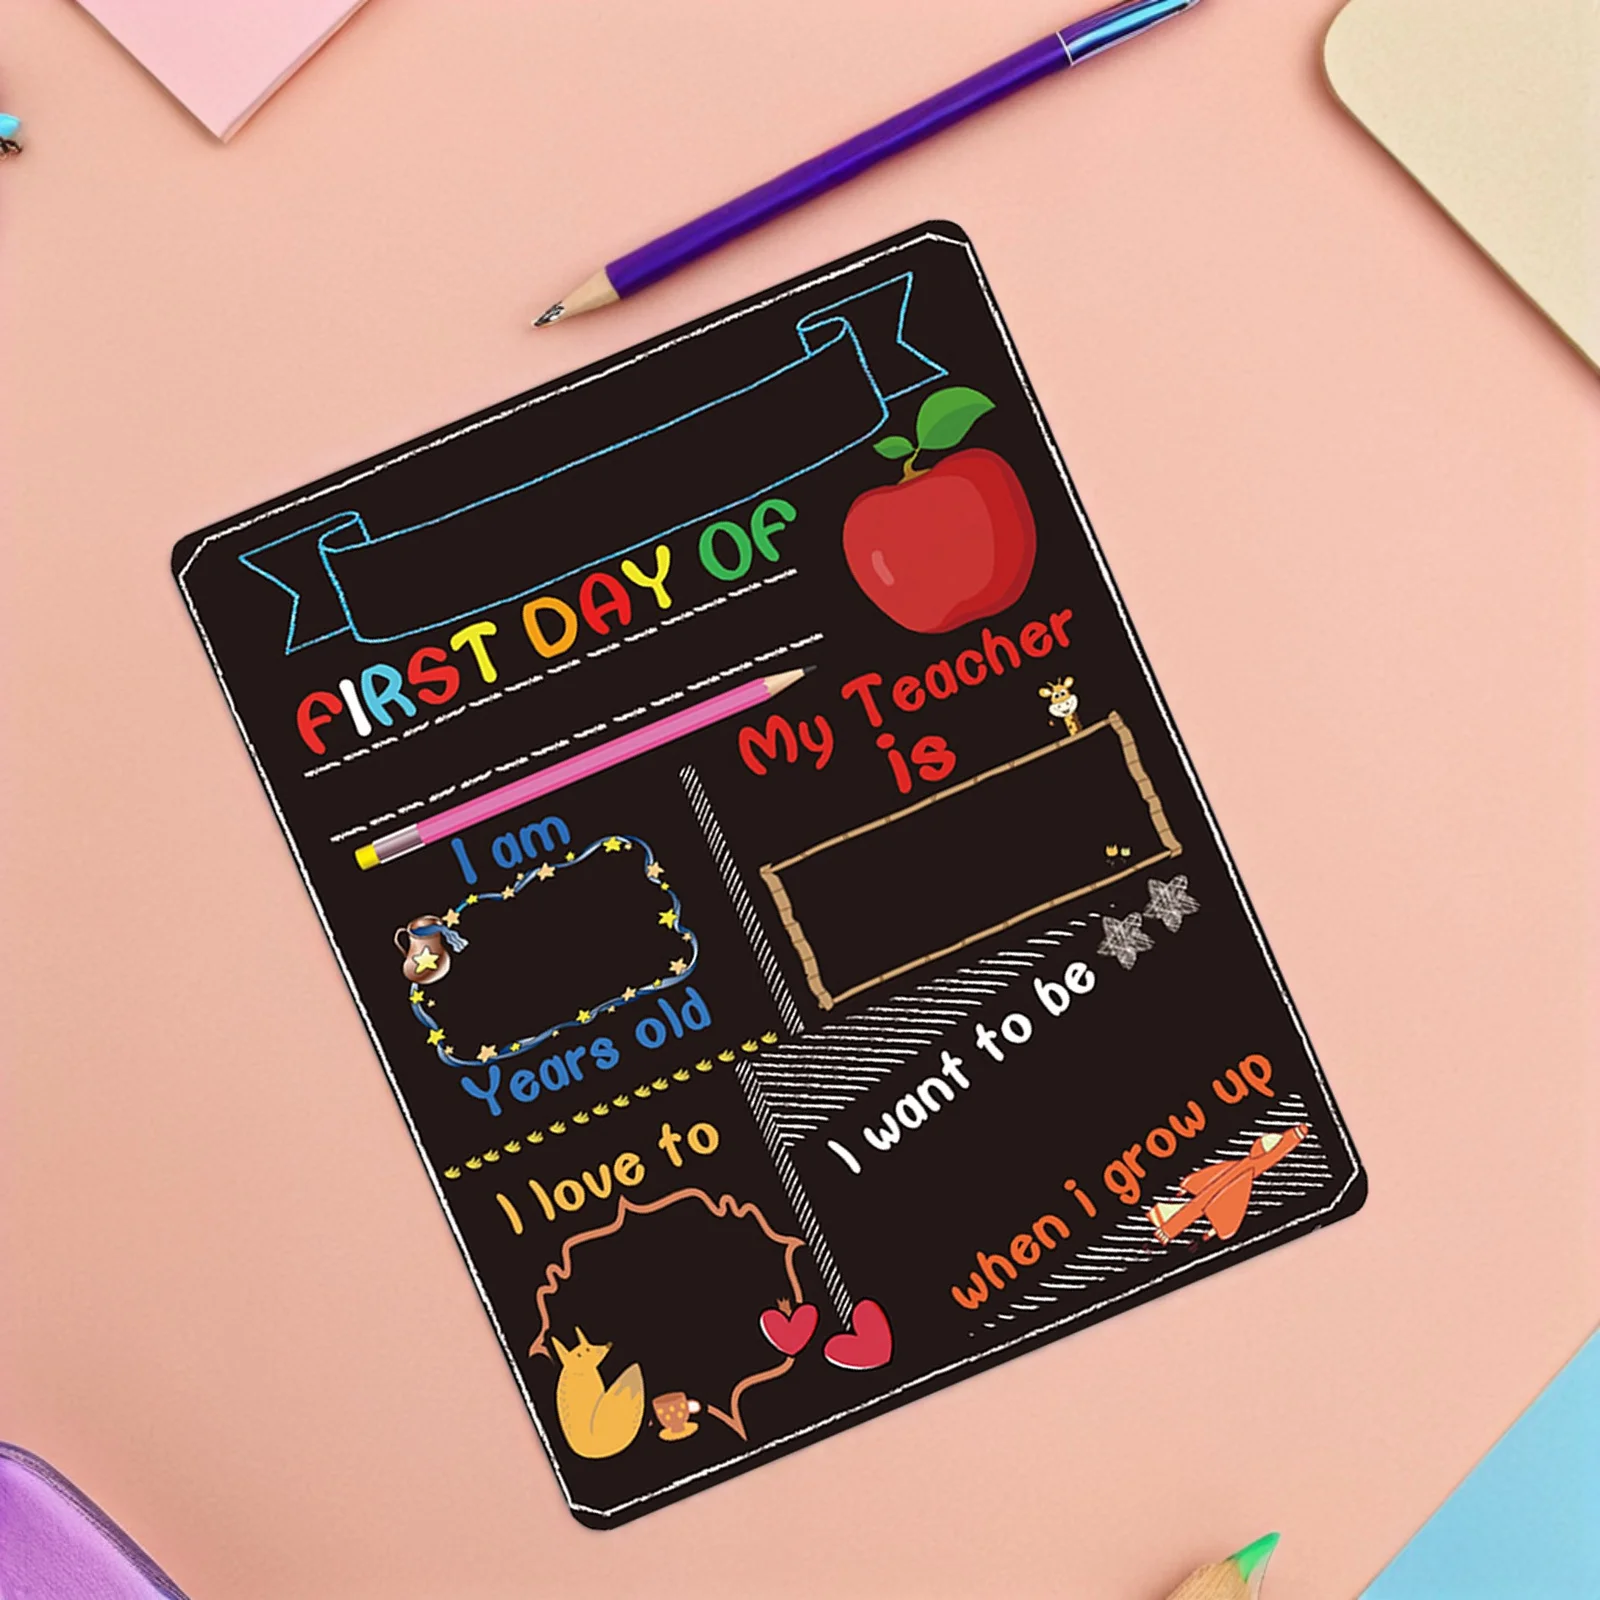 FIRST DAY OF
My Teacher
is
I am
Years old
I want to be
when i grow up
I love to